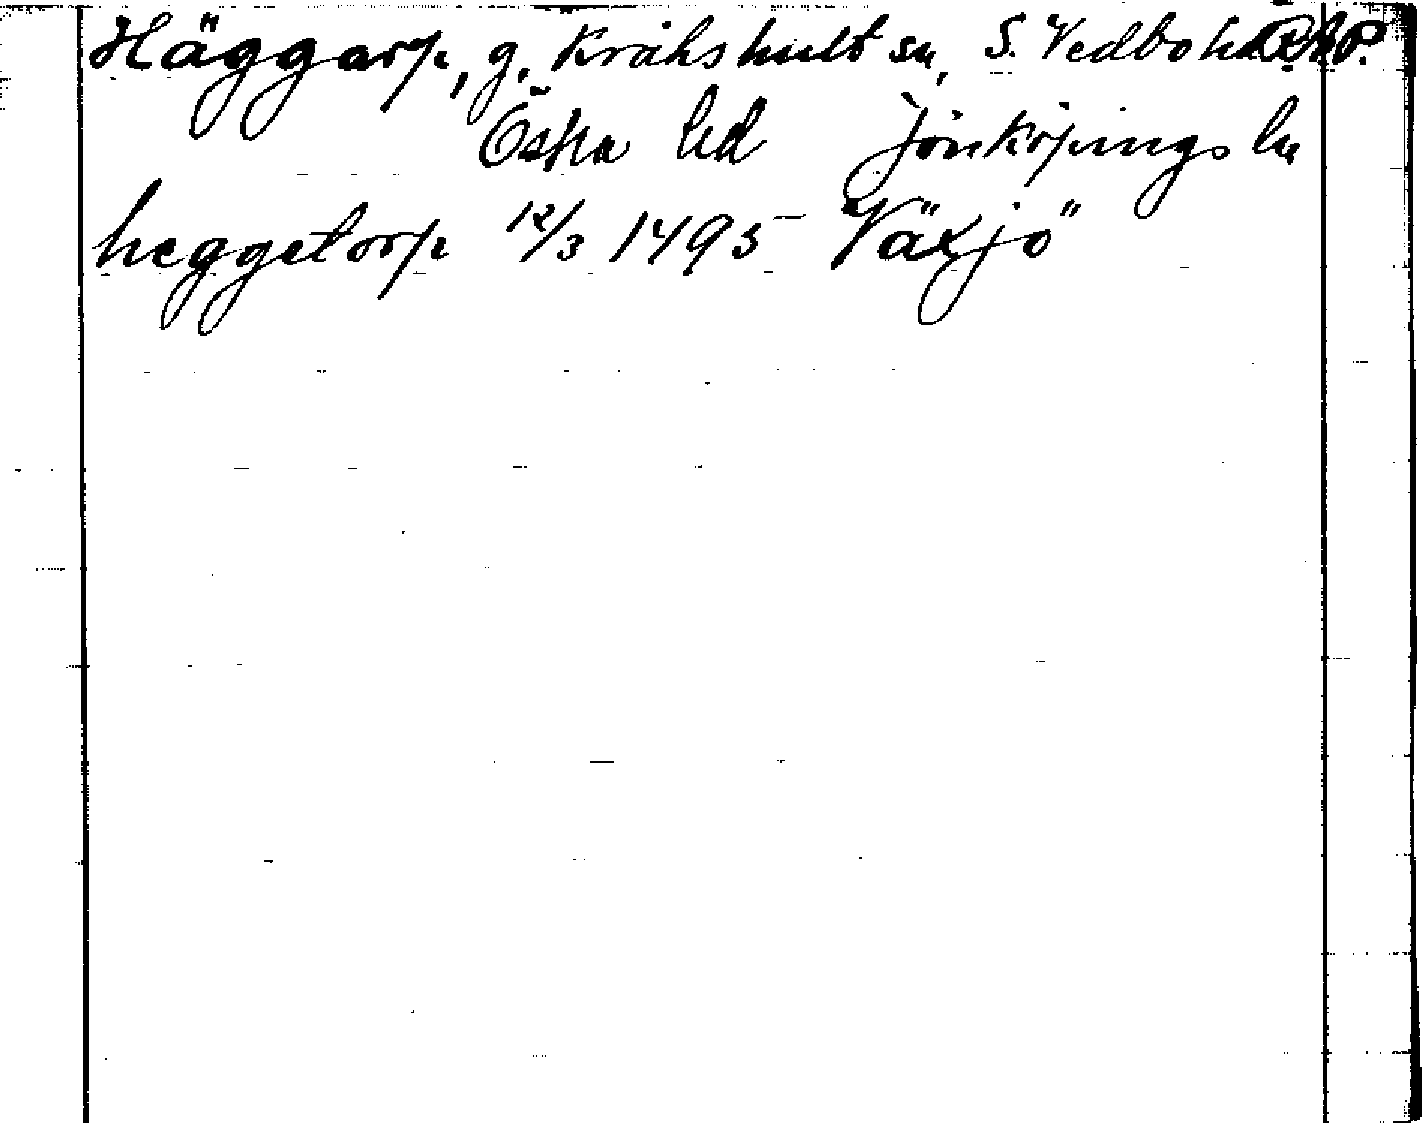 Häggarp, g. Kråkshult sn, S. Vedbo hd
Östra hd Jönköpings län
heggetorp 12/3 1495 Växjö